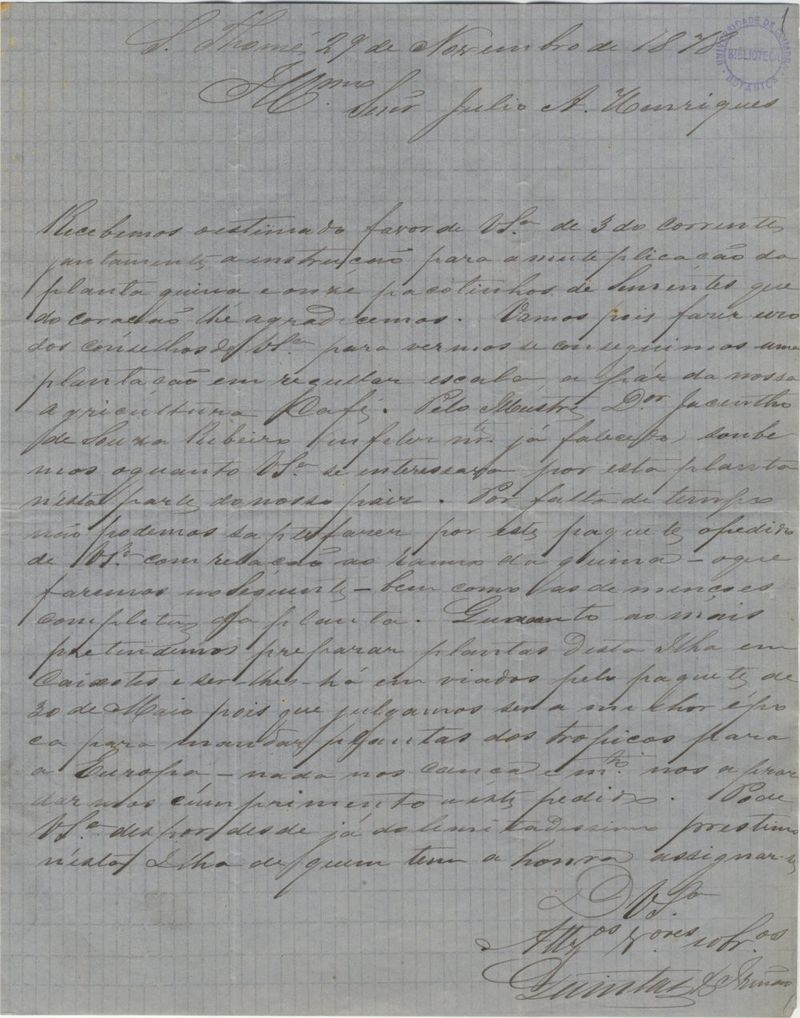 S. Thomé, 29 de Novembro de 1878
UNIVERSIDADE DE COIMBRA
BIBLIOTECA
BOTANICA
Illmo
Snr Julio A. Henriques
Recebemos o estimado favor de V.Sa de 3 do corrente,
juntamente a instrucção para a muteplicação da
planta quina e onze pacotinhos de sementes que
do coração lhe agradecemos. Vamos pois fazer uso
dos conselhos de V.Sa para vermos se conseguimos uma
plantação em regullar escalla, a pár da nossa
agricúltura Café. Pelo Illustre Dor Jacintho
de Souza Ribeiro infelizmte já falecido, soube
mos o quanto V.Sa se interessava por esta planta
n'esta parte do nosso paiz. Por falta de tempo
não podemos satesfazer por este paquete, o pedido
de V.Sa com relação ao ramo da quina - o que
faremos no seguinte - bem como as demenções
completas da planta. Quanto ao mais
pretendemos preparar plantas desta Ilha em
Caixotes e ser-lhes-há em viados pelo paquete de
30 de Maio pois que julgamos ser a milhor épo
ca para mandar plantas dos tropicos para
a Europa - nada nos cança e mto nos aprar
dar mos cúmprimento a este pedido. Pode
V.Sa despor desde já do lemitadissimo prestimo
n'ésta Ilha de quem tem a honra assignar-se
D V.Sa
Attos Vores obros
Quintas & Irmão